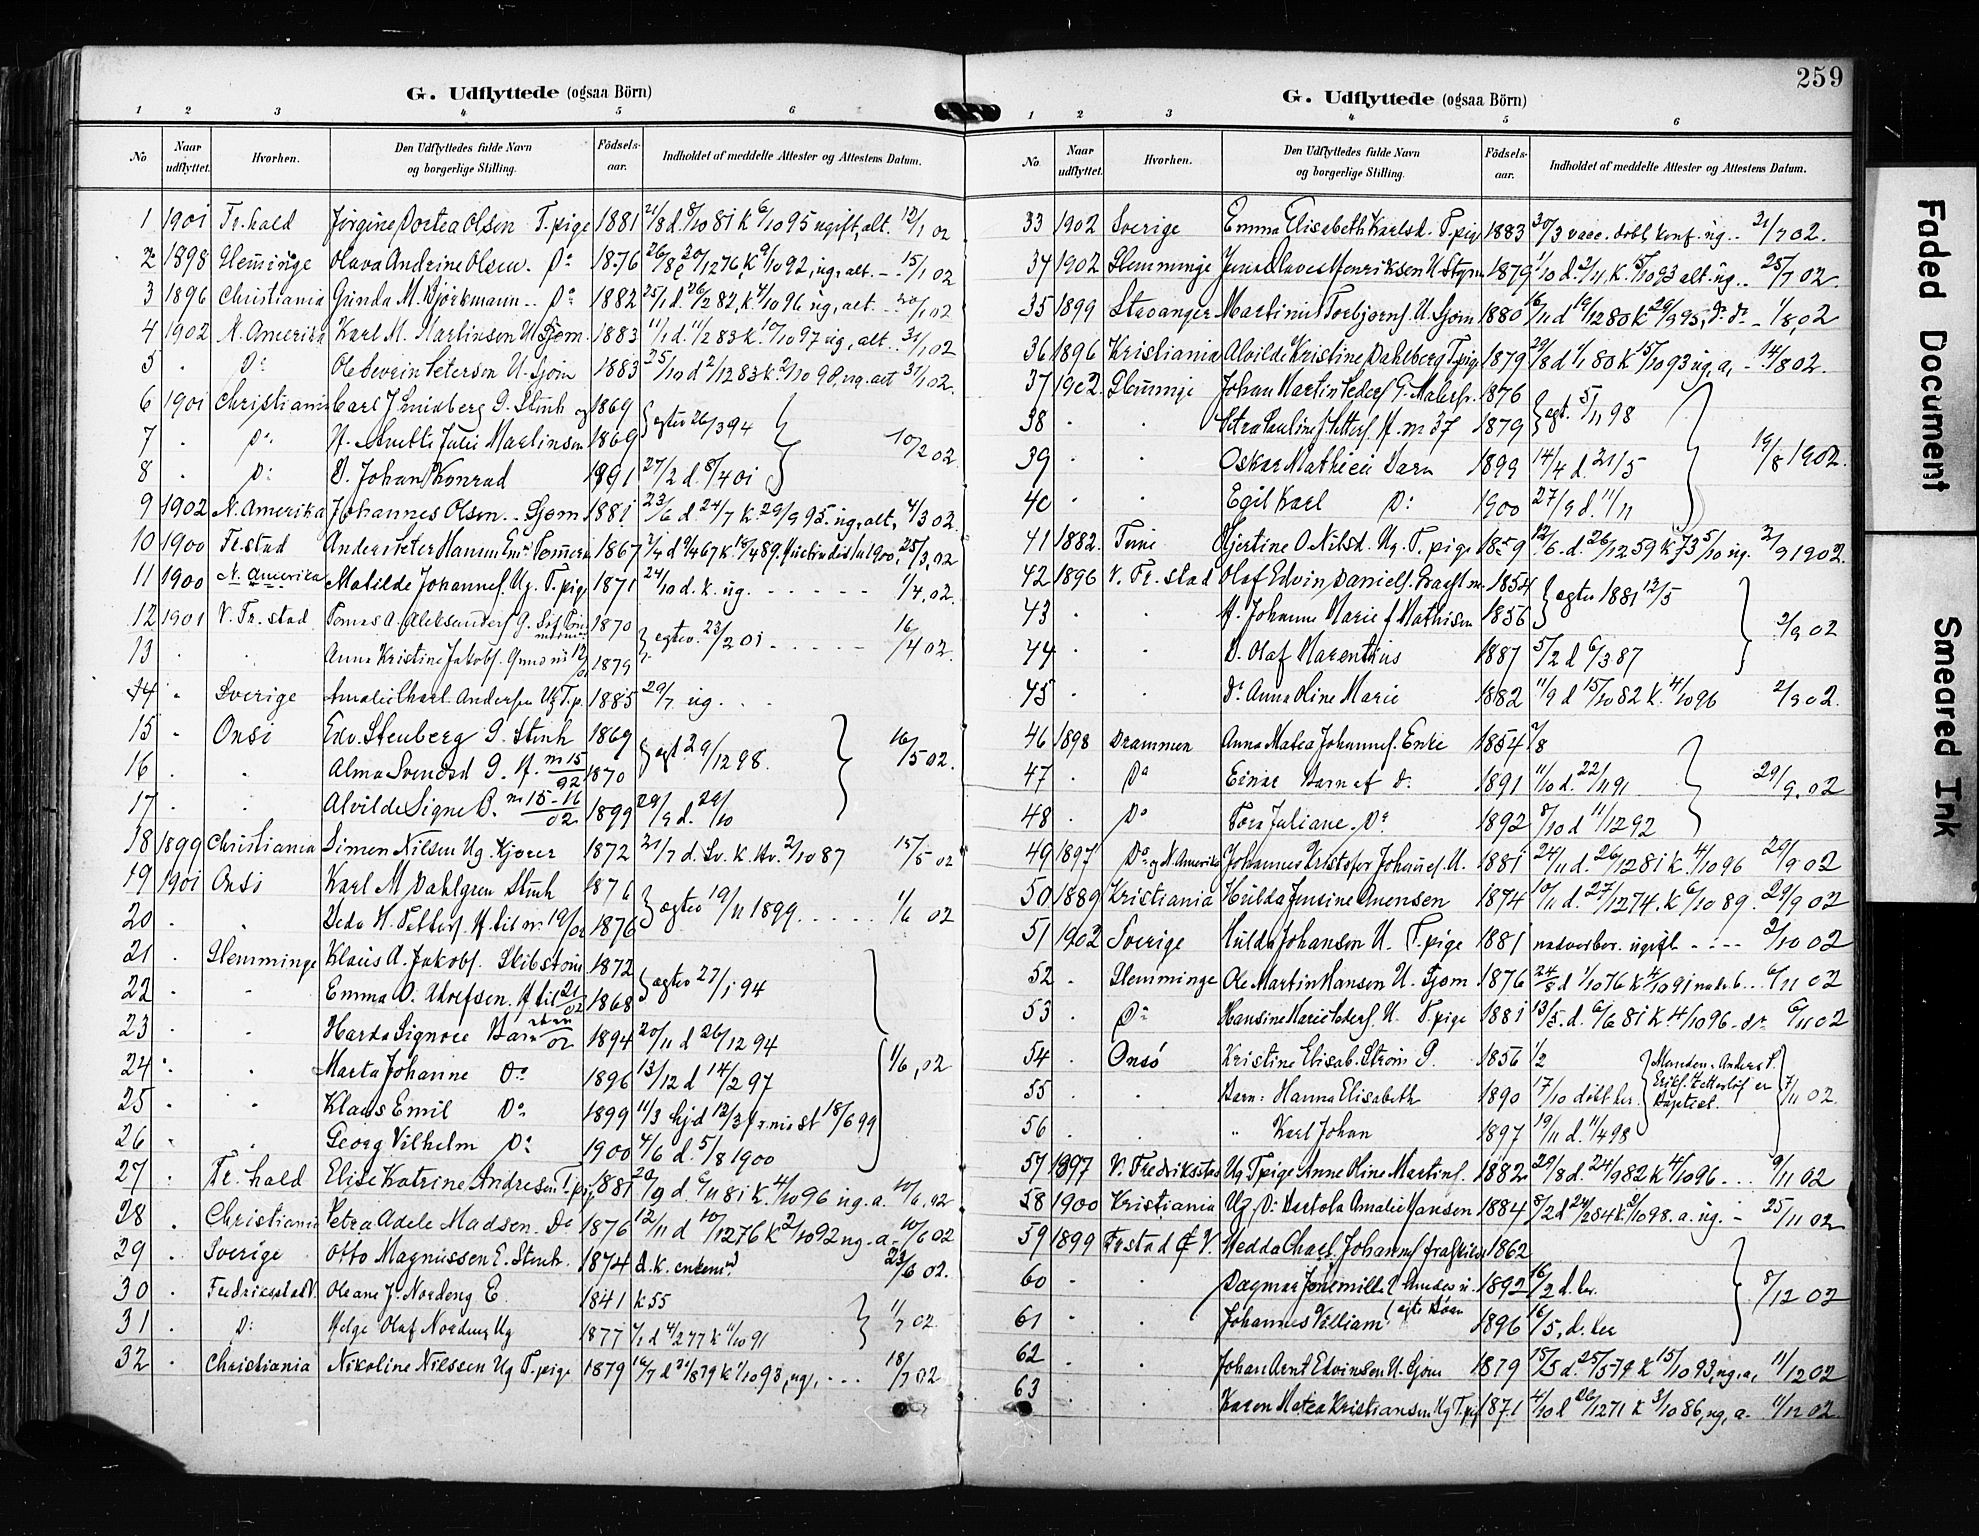 259
G. Udflyttede (ogsaa Börn)
1 2 3 4 5 6
No Naar udflyttet. Hvorhen. Den Udflyttedes fulde Navn og borgerlige Stilling. Födsels-aar. Indholdet af meddelte Attester og Attestens Datum.
1 1901 Fr.hald Jörgine Dortea Olsen T.pige 1881 21/8 d. 8/10 81 k 6/10 95 ugift, alt. 12/1 02
2 1898 Glemminge Olava Andrine Olsen. Do 1876 k. 9/10 92, ug, alt. 15/1 02
3 1896 Christiania Gunda M. Björkmann Do 1882 25/1 d. 26/2 82, k. 4/10 96 ug, alt. 20/1 02
4 1902 N. Amerika Karl M. Martinsen U Sjöm. 1883 11/1 d. 11/2 83 k. 10/10 97 ug, alt. 31/1 02
5 . Do Ole Severin Peterson U. Sjöm 1883 25/10 d 2/12 83 k. 2/10 98, ug. alt 31/1 02.
6 1901 Christiania Carl J. G. Stenh og 1869 } egtev 26/3 94
7 . Do H. Anette Julie Martinsen 1869 10/2 02
8 . Do D. Johan Konrad 1891 27/2 d. 8/4 01
9 1902 N. Amerika Johannes Olsen. Sjöm. 1881 23/6 d. 24/7 k. 29/9 95. ug, alt, 4/3 02.
10 1900 Fr.stad Anders Peter Hansen Em. 1867 2/4 d 9/4 67 k 25/3, 02
11 1900 N. Amerika Matilde Johannes. Ug. T.pig 1871 24/10 d. k. ug. 1/4, 02.
12 1901 V. Fr. stad Tomas A. Aleksanders G. 1870 } egtev. 23/2 01 16/4 02.
13 . . Anna Kristine Jakobs. 1879
14 . Sverige Amalie Charl. Anderssen Ug T.p. 1885 29/7 ug.
15 . Onsö Edv. Stenberg G. Stenh 1869 } egt 29/12 98. 16/5 02.
16 . . Alma Svendsd G. H. m 15/02 1870
17 . . Alvilde Signe B. m 15-16/02 1899 29/9 d. 29/10
18 1899 Christiania Simon Nilsen Ug. Kjörer 1872 21/7 d. Sv. K. Hv. 2/10 87 15/5 02
19 1901 Onsö Karl M. Dahlgren Stenh 1876 } egtev 19/11 1899. 1/6 02
20 . . H. Petters. H. til nr. 19/02 1876
21 . Glemminge Klaus A. Jakobs. Skibstöm 1872 } egtev 27/1 94
22 . . Emma O. Adolfsen. H til 21/02 1868
23 . . Harda Signore Barn 1894 20/11 d 26/12 94
24 . . Marta Johanne Do 1896 13/12 d 14/2 97 1/6, 02
25 . . Klaus Emil Do 1899 11/3 hjd 12/3 fr. mist 18/6 99
26 . . Georg Vilhelm Do 1900 4/6 d. 5/8 1900
27 . Fr. hald Elise Katrine Andresen T.pig 1881 20/9 d 6/11 81 k. 4/10 96 ug. a. 10/6, 02
28 . Christiania Petra Adele Madsen. Do 1876 12/11 d 10/12 76 k 2/10 92 ug. a. 10/6 02
29 . Sverige Otto Magnussen E. Stenh. 1874 d. k. enkem. 23/6 02.
30 . Fredriksstad V. Oleane J. Nordeng E. 1841 k 55
31 . Do Helge Olaf Nordeng Ug 1877 d 4/2 77 k 11/10 91 11/7 02
32 . Christiania Nikoline Nilssen Ug T.pige 1879 16/7 d 31/8 79 k 1/10 93, ug, 18/7 02
G. Udflyttede (ogsaa Börn)
1 2 3 4 5 6
No Naar udflyttet. Hvorhen. Den Udflyttedes fulde Navn og borgerlige Stilling. Födsels-aar. Indholdet af meddelte Attester og Attestens Datum.
33 1902 Sverige Emma Elisabeth Karlsd. T.pig 1883 30/3 vacc. döbt konf. ug. 21/7 02.
34 1902 Glemminge Jens Olaves Henriksen U Styrm 1879 1/10 d. 2/11, k. 15/10 93 alt. ug. 25/7 02.
35 1899 Stavanger Martinus Torbjörns. U. Sjöm 1880 16/11 d 19/12 80 k 29/9 95, do do 1/8, 02
36 1896 Kristiania Alvilde Kristine Dahlberg T.pige 1879 29/8 d. 1/1 80 k 15/10 93 ug, a, 14/8 02.
37 1902 Glemmige Johan Martin Peders. G. Malers. 1876 } egt. 5/11 98
38 . . Petra Pauline Petters. H. m 37 1879
39 . . Oskar Mathieu Barn 1899 14/4 d. 21/5 19/8 1902.
40 . . Egil Karl Do 1900 27/9 d. 11/11
41 1882. Tune Hjertine O. Nilsd. Ug. T.pige 1859 12/6. d. 26/12 59 k 73 5/10 ug. 2/9 1902.
42 1896 V. Fr. stad Olaf Edvin Daniels. 1854 } egtev 1881 12/5
43 . . H. Johanne Marie f Mathisen 1856 2/9 02
44 . . B. Olaf Marentius 1887 5/2 d 6/3 87
45 . . Do Anna Oline Marie 1882 11/9 d 15/10 82 k. 4/10 96 2/9 02.
46 1898 Drammen Anna Matea Johannes. Enke 1854 2/8
47 . Do Einar Barn af Do 1891 11/10 d. 22/11 91 29/9. 02
48 . Do Tora Juliane. Do 1892 8/10 d 11/12 92
49 1897 Do og N. Amerika Johannes Kristofer Johannes. U. 1881 24/11 d. 26/12 81 k. 4/10 96 29/9 02
50 1889 Kristiania Hulda Jensine Anensen 1874 10/11 d. 27/12 74. k 6/10 89. 29/9 02
51 1902 Sverige Hulda Johansen U. T.pige 1881 nadverber. ugift 3/10 02
52 . Glemminge Ole Martin Hansen U. Sjöm 1876 24/8 d 1/10 76 k 4/10 91 nadvb. 6/11 02
53 . Do Hansine Marie Peders. U. T.pige 1881 13/5. d. 6/6 81 k. 4/10 96 do 6/11 02
54 . Onsö Kristine Elisab. Ström G. 1856 1/2 Manden: Anders P. Eriks. Zetterlöf er Baptist. 7/11 02.
55 . . Barn: Hanna Elisabeth 1890 17/10 döbt her.
56 . . " Karl Johan 1897 19/11 d. 11/4 98
57 1897 V. Fredriksstad Ug T.pige Anne Oline Martins. 1882 29/8 d. 24/9 82 k 4/10 96. 9/11 02
58 1900 Kristiania Ug. Do Bertola Amalie Hansen 1884 8/2 d 24/2 84 k 2/10 98. a. ug. 25/11 02
59 1899 Frstad & V. Hedda Charl. Johannes. fraskilt 1862
60 . . Dagmar Jone Mille { Hendes u. egte Börn 1892 16/2 d. her. 8/12 02
61 . . Johannes William 1896 16/5, d. her
62 . . Johan Arnt Edvinsen U. Sjöm 1879 15/5 d. 25/5 79 k 15/10 93, ug, a, 11/12 02
63 . . Karen Matea Kristiansen Ug T.pig 1871 4/10 d 26/12 71 k 3/10 86, ug, a. 11/12 02.
Faded Document
Smeared Ink